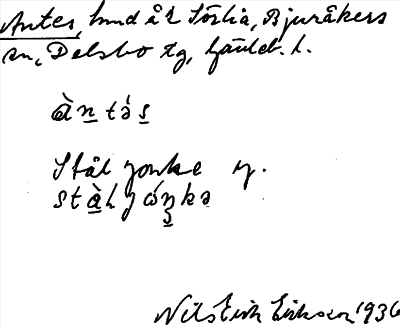 Antes, hmd å h Sörlia, Bjuråkers
sn, Delsbo tg, Gävleb. l.
àntəs
Stålgonke m.
stàlgóŋkə
Nils Erik Eriksson 1936